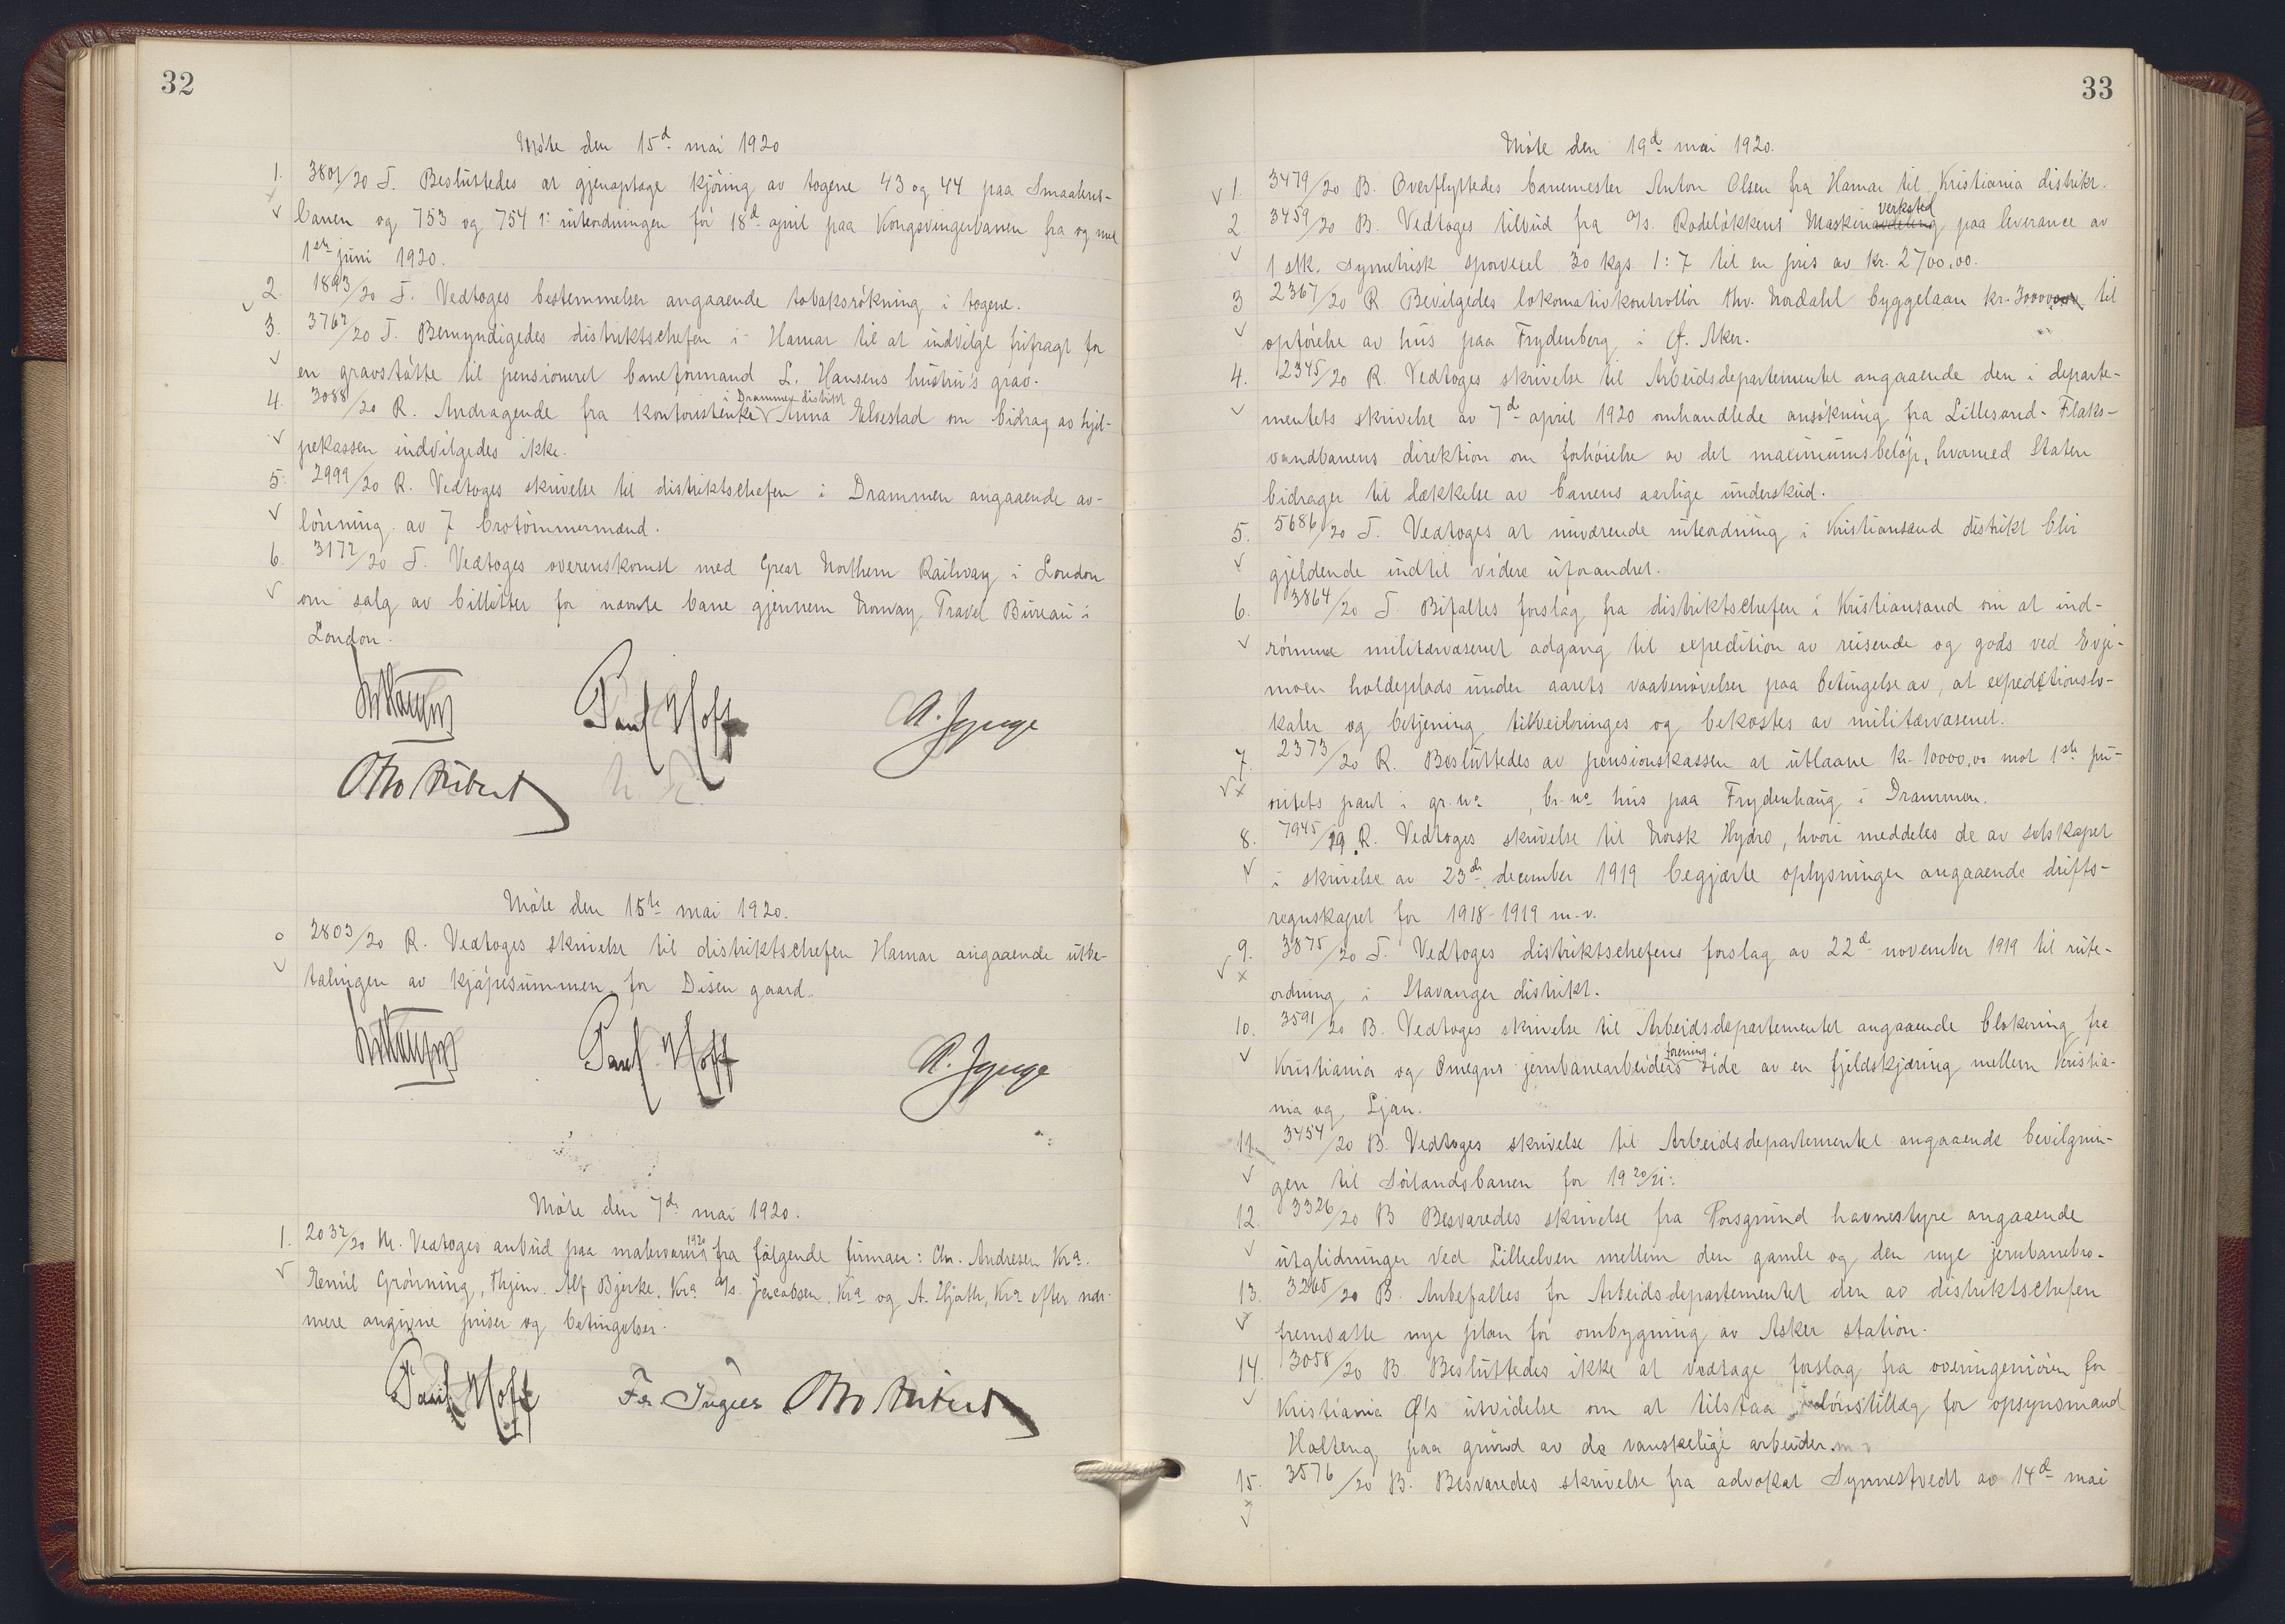 32
Møte den 15d mai 1920
1. 3801/20 T. Besluttedes at gjenoptage kjøring av togene 43 og 44 paa Smaalens-
banen og 753 og 754 i ruteordningen før 18d april paa Kongsvingerbanen fra og med
1ste juni 1920.
2. 1893/20 T. Vedtoges bestemmelser angaaende tobaksrøkning i togene.
3. 3762/20 T. Bemyndigedes distriktschefen i Hamar til at indvilge frifragt for
en gravstøtte til pensioneret baneformand L. Hansens hustru's grav.
i Drammen distrikt
4. 3088/20 R. Andragende fra kontoristinde Anna Elvestad om bidrag av hjæl-
pekassen indvilgedes ikke.
5. 2999/20 R. Vedtoges skrivelse til distriktschefen i Drammen angaaende av-
lønning av 7 brotømmermænd.
6. 3172/20 T. Vedtoges overenskomst med Great Northern Railway i London
om salg av billetter for nævnte bane gjennem Norway Travel Bureau i
London.
Paul Hoff
Otto Aubert
Møte den 15de mai 1920.
2803/20 R. Vedtoges skrivelse til distriktschefen Hamar angaaende utbe-
talingen av kjøpesummen for Disen gaard.
Paul Hoff
Møte den 7de mai 1920.
1. 2032/20 M. Vedtoges anbud paa malervarer 1920 fra følgende firmaer: Chr. Andresen Kra.
Remil Grønning, Thjem. Alf Bjerke, Kra A/s. Jacobsen, Kra og A. Hjorth, Kra efter nær-
mere angivne priser og betingelser.
Paul Hoff Otto Aubert
33
Møte den 19d mai 1920.
1. 3479/20 B. Overflyttedes banemester Anton Olsen fra Hamar til Kristiania distrikt.
verksted
2 3459/20 B. Vedtoges tilbud fra A/s. Rodeløkkens Maskinavdeling paa leverance av
1 stk. symetrisk sporvexel 30 kgs 1:7 til en pris av kr. 2700,00.
3 2367/20 R. Bevilgedes lokomotivkontrollør Thv. Nordahl byggelaan kr. 30000 til
opførelse av hus paa Frydenberg i Ø. Aker.
4. 2345/20 R. Vedtoges skrivelse til Arbeidsdepartementet angaaende den i departe-
mentets skrivelse av 7de april 1920 omhandlede ansøkning fra Lillesand-Flaks-
vandbanens direktion om forhøielse av det maximumsbeløp, hvormed Staten
bidrager til dækkelse av banens aarlige underskud.
5. 5686/20 T. Vedtoges at nuværende ruteordning i Kristiansand distrikt blir
gjeldende indtil videre uforandret.
6. 3864/20 T. Bifaltes forslag fra distriktschefen i Kristiansand om at ind-
rømme militærvæsenet adgang til expedition av reisende og gods ved Evje-
moen holdeplads under aarets vaabenøvelser paa betingelse av, at expeditionslo-
kaler og betjening tilveiebringes og bekostes av militærvæsenet.
7. 2373/20 R. Besluttedes av pensionskassen at utlaane kr. 10000,00 mot 1ste pri-
oritets pant i gr. no , br. no hus paa Frydenhaug i Drammen.
8. 7945/19 R. Vedtoges skrivelse til Norsk Hydro, hvori meddeles de av selskapet
i skrivelse av 23de december 1919 begjærte oplysninger angaaende drifts-
regnskapet for 1918-1919 m.v.
9. 3875/20 T. Vedtoges distriktschefens forslag av 22d november 1919 til rute-
ordning i Stavanger distrikt.
10. 3591/20 B. Vedtoges skrivelse til Arbeidsdepartementet angaaende blokering fra
forening
Kristiania og Omegns jernbanearbeiders side av en fjeldskjæring mellem Kristia-
nia og Ljan.
11. 3454/20 B. Vedtoges skrivelse til Arbeidsdepartementet angaaende bevilgnin-
gen til Sørlandsbanen for 1920/21.
12. 3326/20 B Besvaredes skrivelse fra Porsgrund havnestyre angaaende
utglidninger ved Lilleelven mellem den gamle og den nye jernbanebro.
13. 3265/20 B. Anbefaltes for Arbeidsdepartementet den av distriktschefen
fremsatte nye plan for ombygning av Asker station.
14. 3058/20 B. Besluttedes ikke at vedtage forslag fra overingeniøren for
Kristiania Ø's utvidelse om at tilstaa lønstillæg for opsynsmand
Holteng paa grund av de vanskelige arbeider m v
15. 3576/20 B. Besvaredes skrivelse fra advokat Synnestvedt av 14d mai